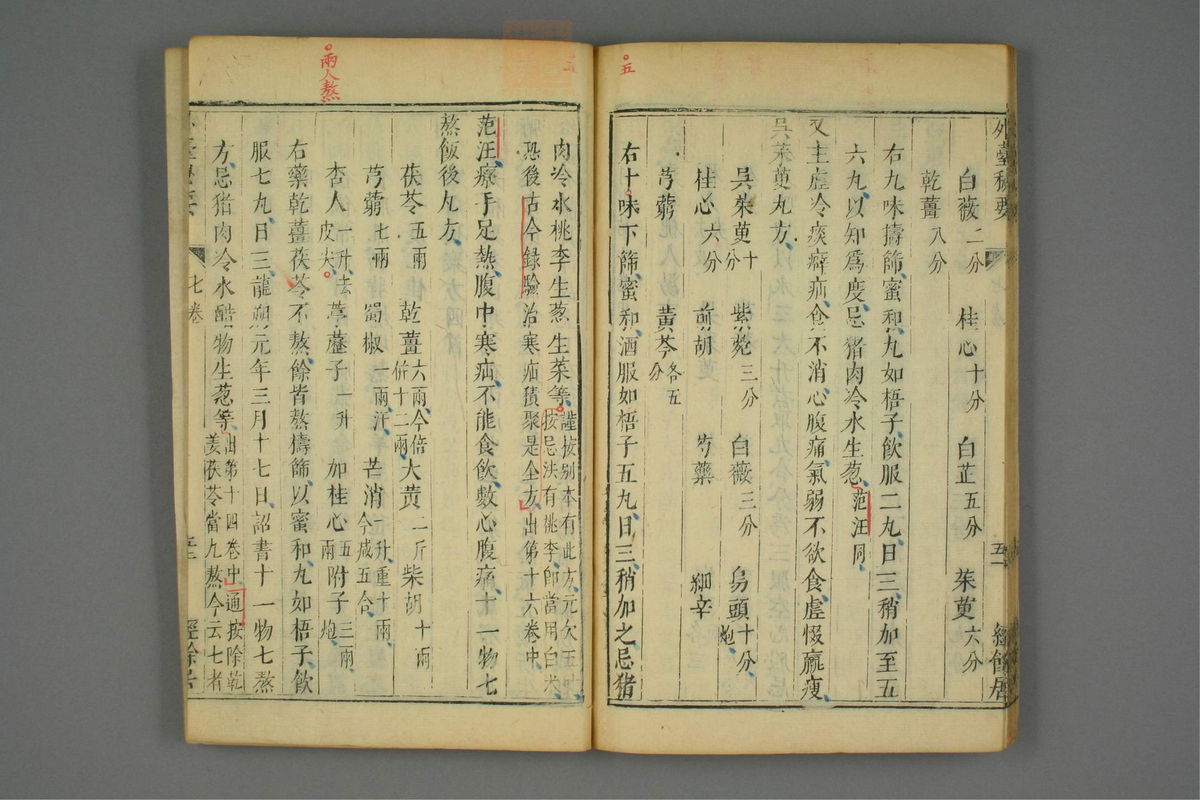 五
外臺秘要
五一
經餘居
白薇二分 桂心十分 白芷五分 茱萸六分
乾薑八分
右九味擣篩蜜和丸如梧子飲服二丸日三稍加至五
六丸以知爲度忌猪肉冷水生葱范汪同
又主虛冷痰癖疝食不消心腹痛氣弱不欲食虛惙羸瘦
吳茱萸丸方
吳茱萸十分 紫菀三分 白薇三分 烏頭十分炮
桂心六分 前胡 芍藥 細辛
芎藭 黃芩各五分
右十味下篩蜜和酒服如梧子五丸日三稍加之忌猪
肉冷水桃李生葱生菜等謹按别本有此方元欠五味
按忌法有桃李即當用白朮
恐後古今録驗治寒疝積聚是全方出第十六卷中
范汪療手足熱腹中寒疝不能食飲數心腹痛十一物七
熬飯後丸方
茯苓五兩 乾薑六兩今倍
併十二兩 大黃二斤 柴胡十兩
芎藭七兩 蜀椒一兩汗 芒消一升重十兩
今減五合
杏人一升去
皮尖 葶藶子一升 加桂心五
兩 附子三兩
炮
右藥乾薑茯苓不熬餘皆熬擣篩以蜜和丸如梧子飲
服七丸日三龍朔元年三月十七日詔書十一物七熬
方忌猪肉冷水醋物生葱等出第十四卷中通按除乾
姜茯苓當九熬今云七者
七卷
經餘居
兩人熬